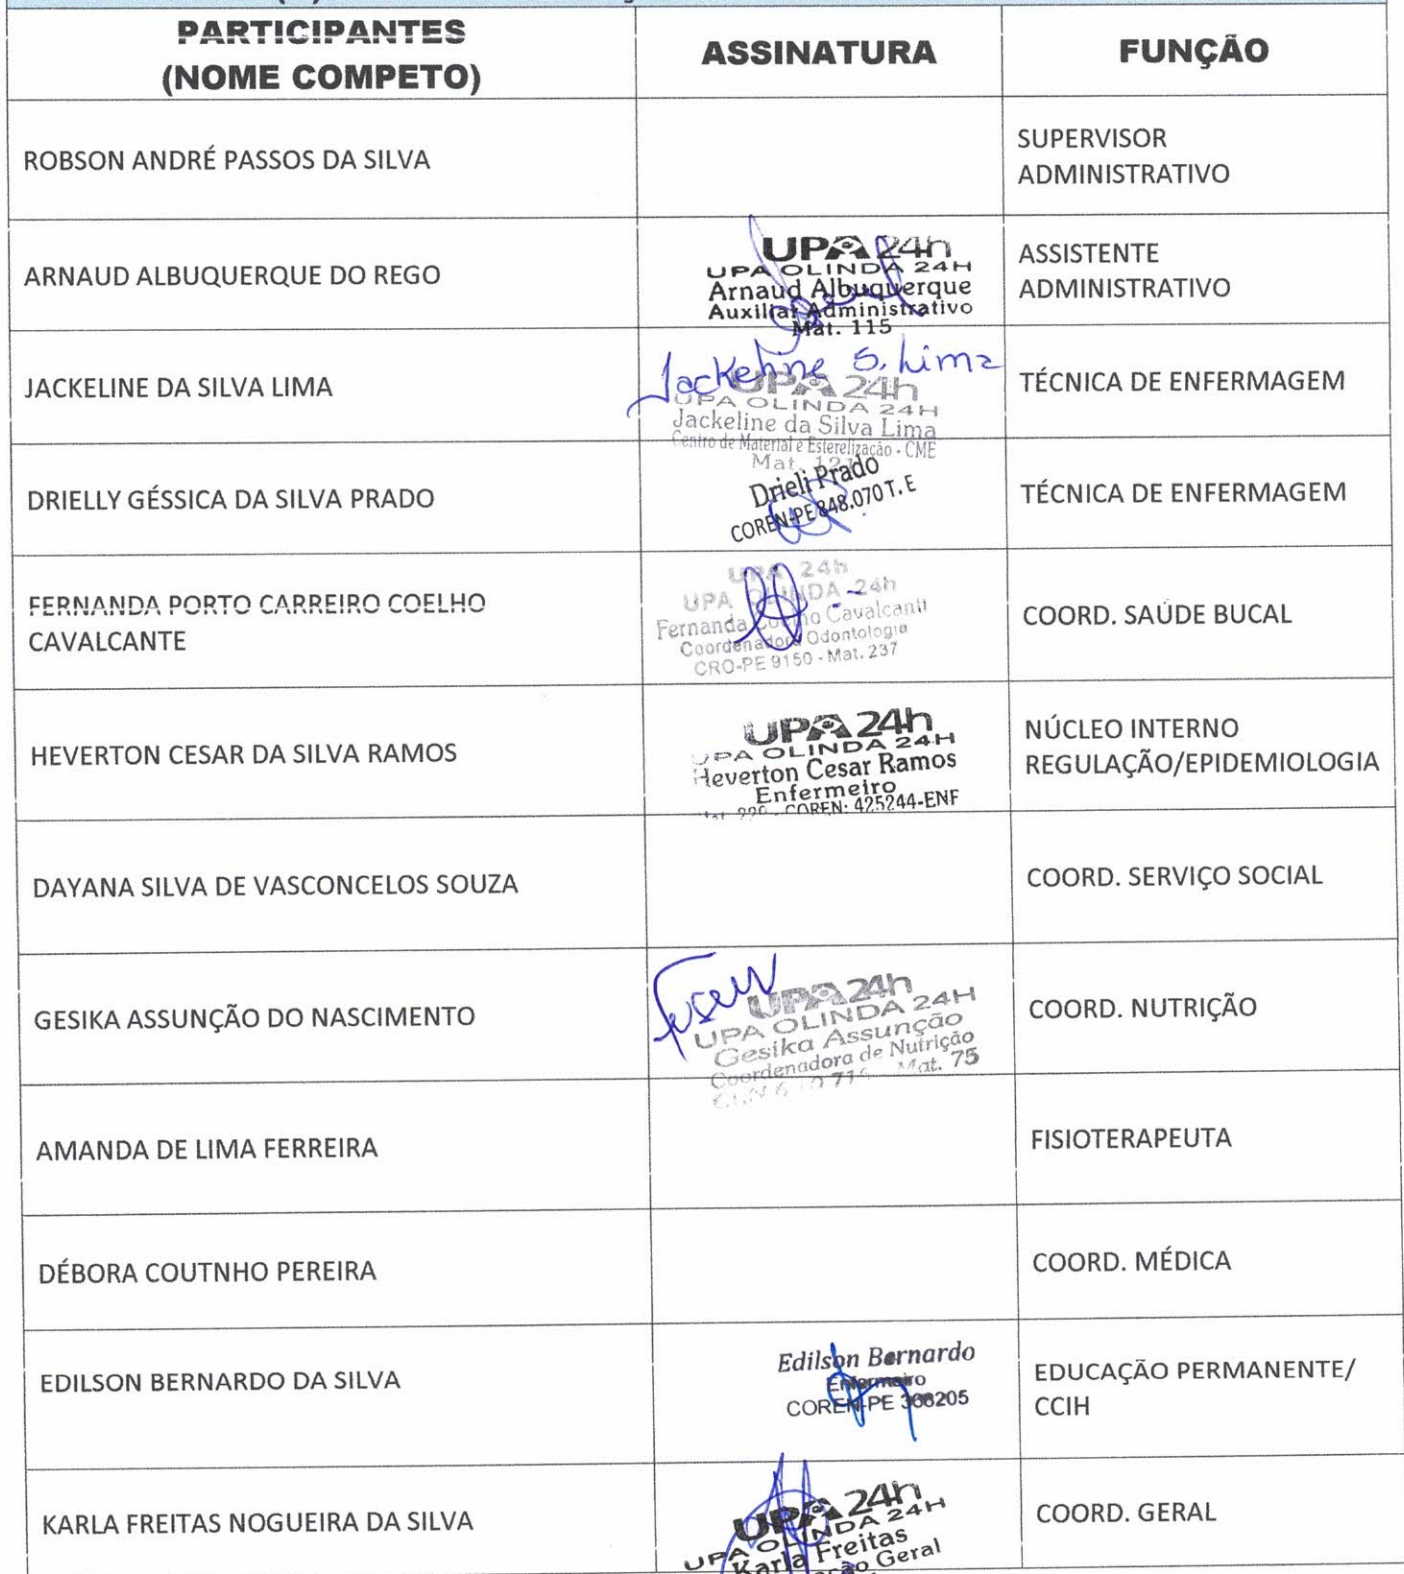 PARTICIPANTES
(NOME COMPETO)
ASSINATURA
FUNÇÃO
ROBSON ANDRÉ PASSOS DA SILVA
SUPERVISOR
ADMINISTRATIVO
ARNAUD ALBUQUERQUE DO REGO
UPA 24h
UPA OLINDA 24H
Arnaud Albuquerque
Auxiliar Administrativo
Mat. 115
ASSISTENTE
ADMINISTRATIVO
JACKELINE DA SILVA LIMA
Jackeline S. Lima
UPA 24h
UPA OLINDA 24H
Jackeline da Silva Lima
Centro de Material e Esterelização - CME
Mat.
TÉCNICA DE ENFERMAGEM
DRIELLY GÉSSICA DA SILVA PRADO
Drieli Prado
COREN-PE 848.070 T.E
TÉCNICA DE ENFERMAGEM
FERNANDA PORTO CARREIRO COELHO
CAVALCANTE
UPA 24h
UPA OLINDA 24h
Fernanda Coelho Cavalcanti
Coordenadora Odontologia
CRO-PE 9150 - Mat. 237
COORD. SAÚDE BUCAL
HEVERTON CESAR DA SILVA RAMOS
UPA 24h
UPA OLINDA 24H
Heverton Cesar Ramos
Enfermeiro
COREN: 425244-ENF
NÚCLEO INTERNO
REGULAÇÃO/EPIDEMIOLOGIA
DAYANA SILVA DE VASCONCELOS SOUZA
COORD. SERVIÇO SOCIAL
GESIKA ASSUNÇÃO DO NASCIMENTO
UPA 24h
UPA OLINDA 24H
Gesika Assunção
Coordenadora de Nutrição
Mat. 75
COORD. NUTRIÇÃO
AMANDA DE LIMA FERREIRA
FISIOTERAPEUTA
DÉBORA COUTNHO PEREIRA
COORD. MÉDICA
EDILSON BERNARDO DA SILVA
Edilson Bernardo
Enfermeiro
COREN-PE 368205
EDUCAÇÃO PERMANENTE/
CCIH
KARLA FREITAS NOGUEIRA DA SILVA
UPA 24h
UPA OLINDA 24H
Karla Freitas
Geral
COORD. GERAL